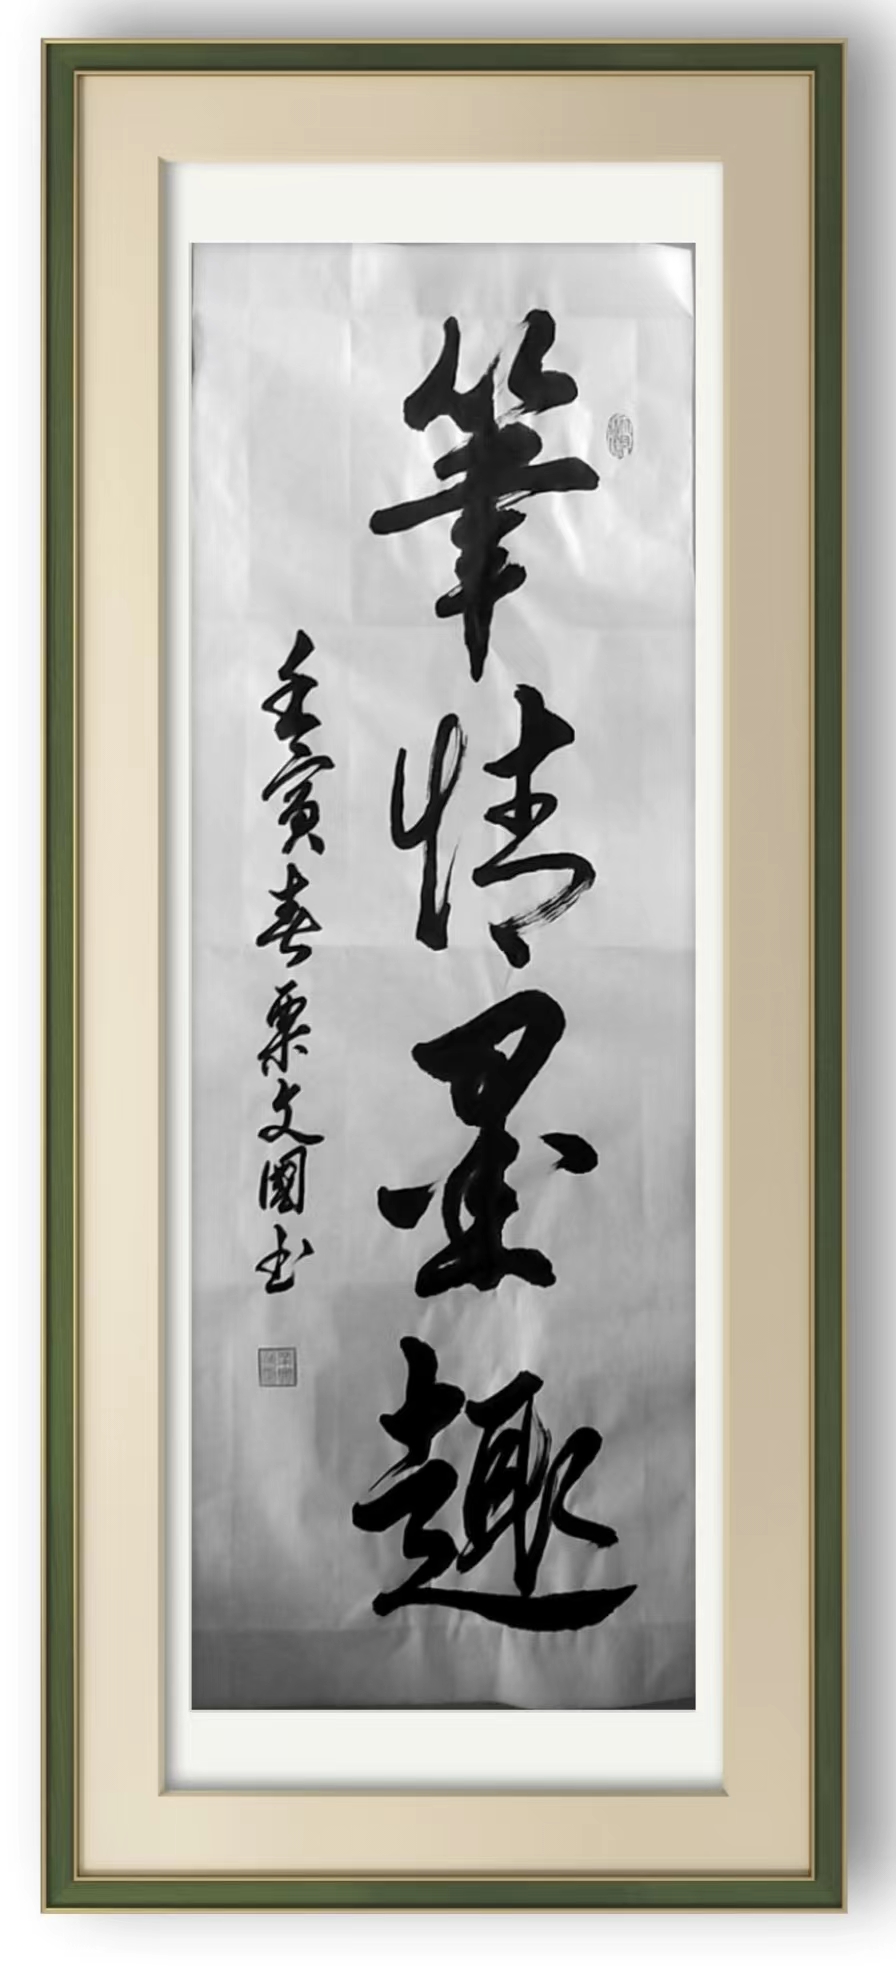 筆情墨趣
壬寅春栗文國书